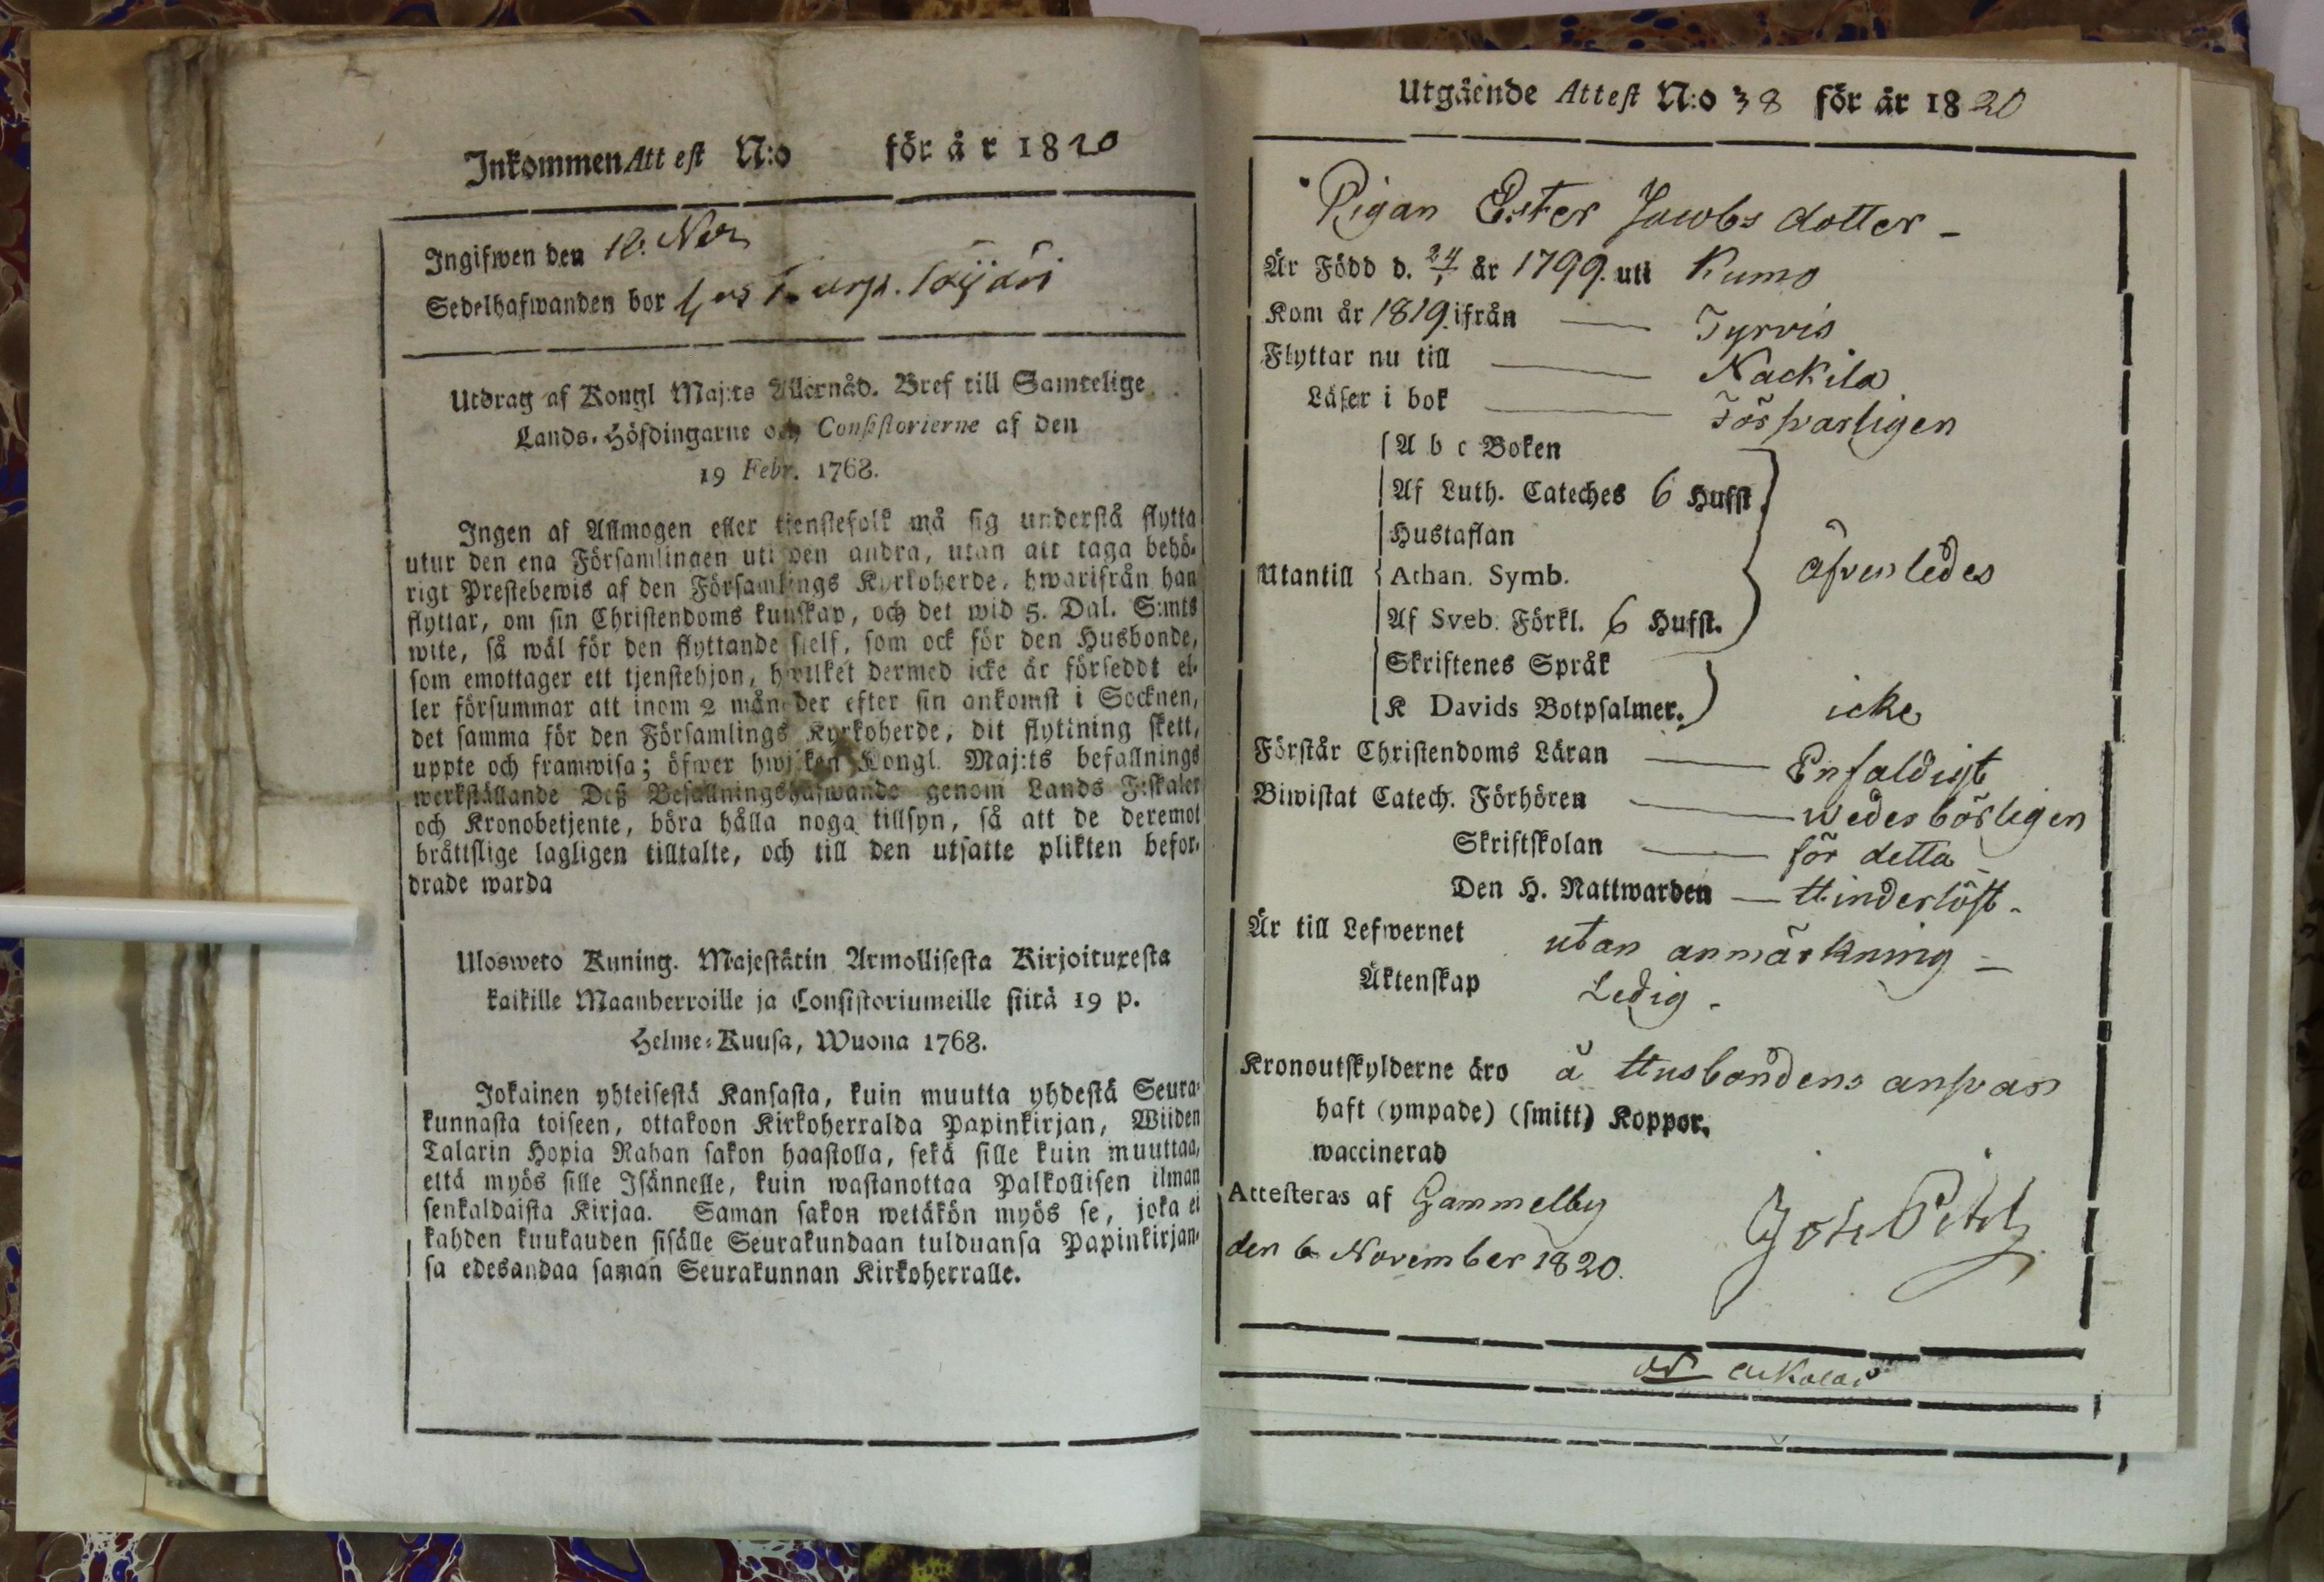 Inkommen Attest N:o för år 1820
Ingifwen den 12. Nov
Sedelhafwanden bor hos
Utdrag af Kongl Maj:ts Allernåd. Bref till Samtelige
Lands-Höfdingarne och Consistorierne af den
19 Febr. 1768.
Ingen af Allmogen eller tjenstefolk må sig understå flytta
utur den ena Församlingen uti den andra, utan att taga behö-
rigt Prestebewis af den Församlings Kyrkoherde, hwarifrån han
flyttar, om sin Christendoms kunskap, och det wid 5. Dal. S:mts
wite, så wäl för den flyttande sjelf, som ock för den Husbonde,
som emottager ett tjenstehjon, hwilket dermed icke är förseddt el-
ler försummar att inom 2 månader efter sin ankomst i Socknen,
det samma för den Församlings Kyrkoherde, dit flyttning skett,
uppte och framwisa; öfwer hwilken Kongl. Maj:ts befallnings
werkställande Deß Befallningshafwande genom Lands Fiskaler
och Kronobetjente, böra hålla noga tillsyn, så att de deremot
bråttslige lagligen tilltalte, och till den utsatte plikten befor-
drade warda
Ulosweto Kuning. Majestätin Armollisesta Kirjoituxesta
kaikille Maanherroille ja Consistoriumeille siitä 19 p.
Helme-Kuusa, Wuona 1768.
Jokainen yhteisestä Kansasta, kuin muutta yhdestä Seura-
kunnasta toiseen, ottakoon Kirkoherralda Papinkirjan, Wiiden
Talarin Hopia Rahan sakon haastolla, sekä sille kuin muuttaa,
että myös sille Isännelle, kuin wastanottaa Palkollisen ilman
senkaldaista Kirjaa. Saman sakon wetäkön myös se, joka ei
kahden kuukauden sisälle Seurakundaan tulduansa Papinkirjan-
sa edesandaa saman Seurakunnan Kirkoherralle.
Utgående Attest N:o 38 för år 1820
Pigan Ester Jacobs dotter -
Är Född d. 24/1 år 1799. uti Kumo
Kom år 1819. ifrån Tyrvis
Flyttar nu till Nackila
Läser i bok Försvarligen
A b c Boken
Af Luth. Cateches 6 Hufst.
Hustaflan
Utantill Athan. Symb. äfvenledes
Af Sveb. Förkl. 6 Hufst.
Skriftenes Språk
K Davids Botpsalmer. icke
Förstår Christendoms Läran Enfaldigt
Biwistat Catech. Förhören wederbörligen
Skriftskolan för detta
Den H. Nattwarden Hinderlöst -
Är till Lefwernet utan anmärkning -
Äktenskap Ledig -
Kronoutskylderne äro å Husbondens ansvar
haft (ympade) (smitt) Koppor.
waccinerad
Attesteras af Gammelby
den 6 November 1820.